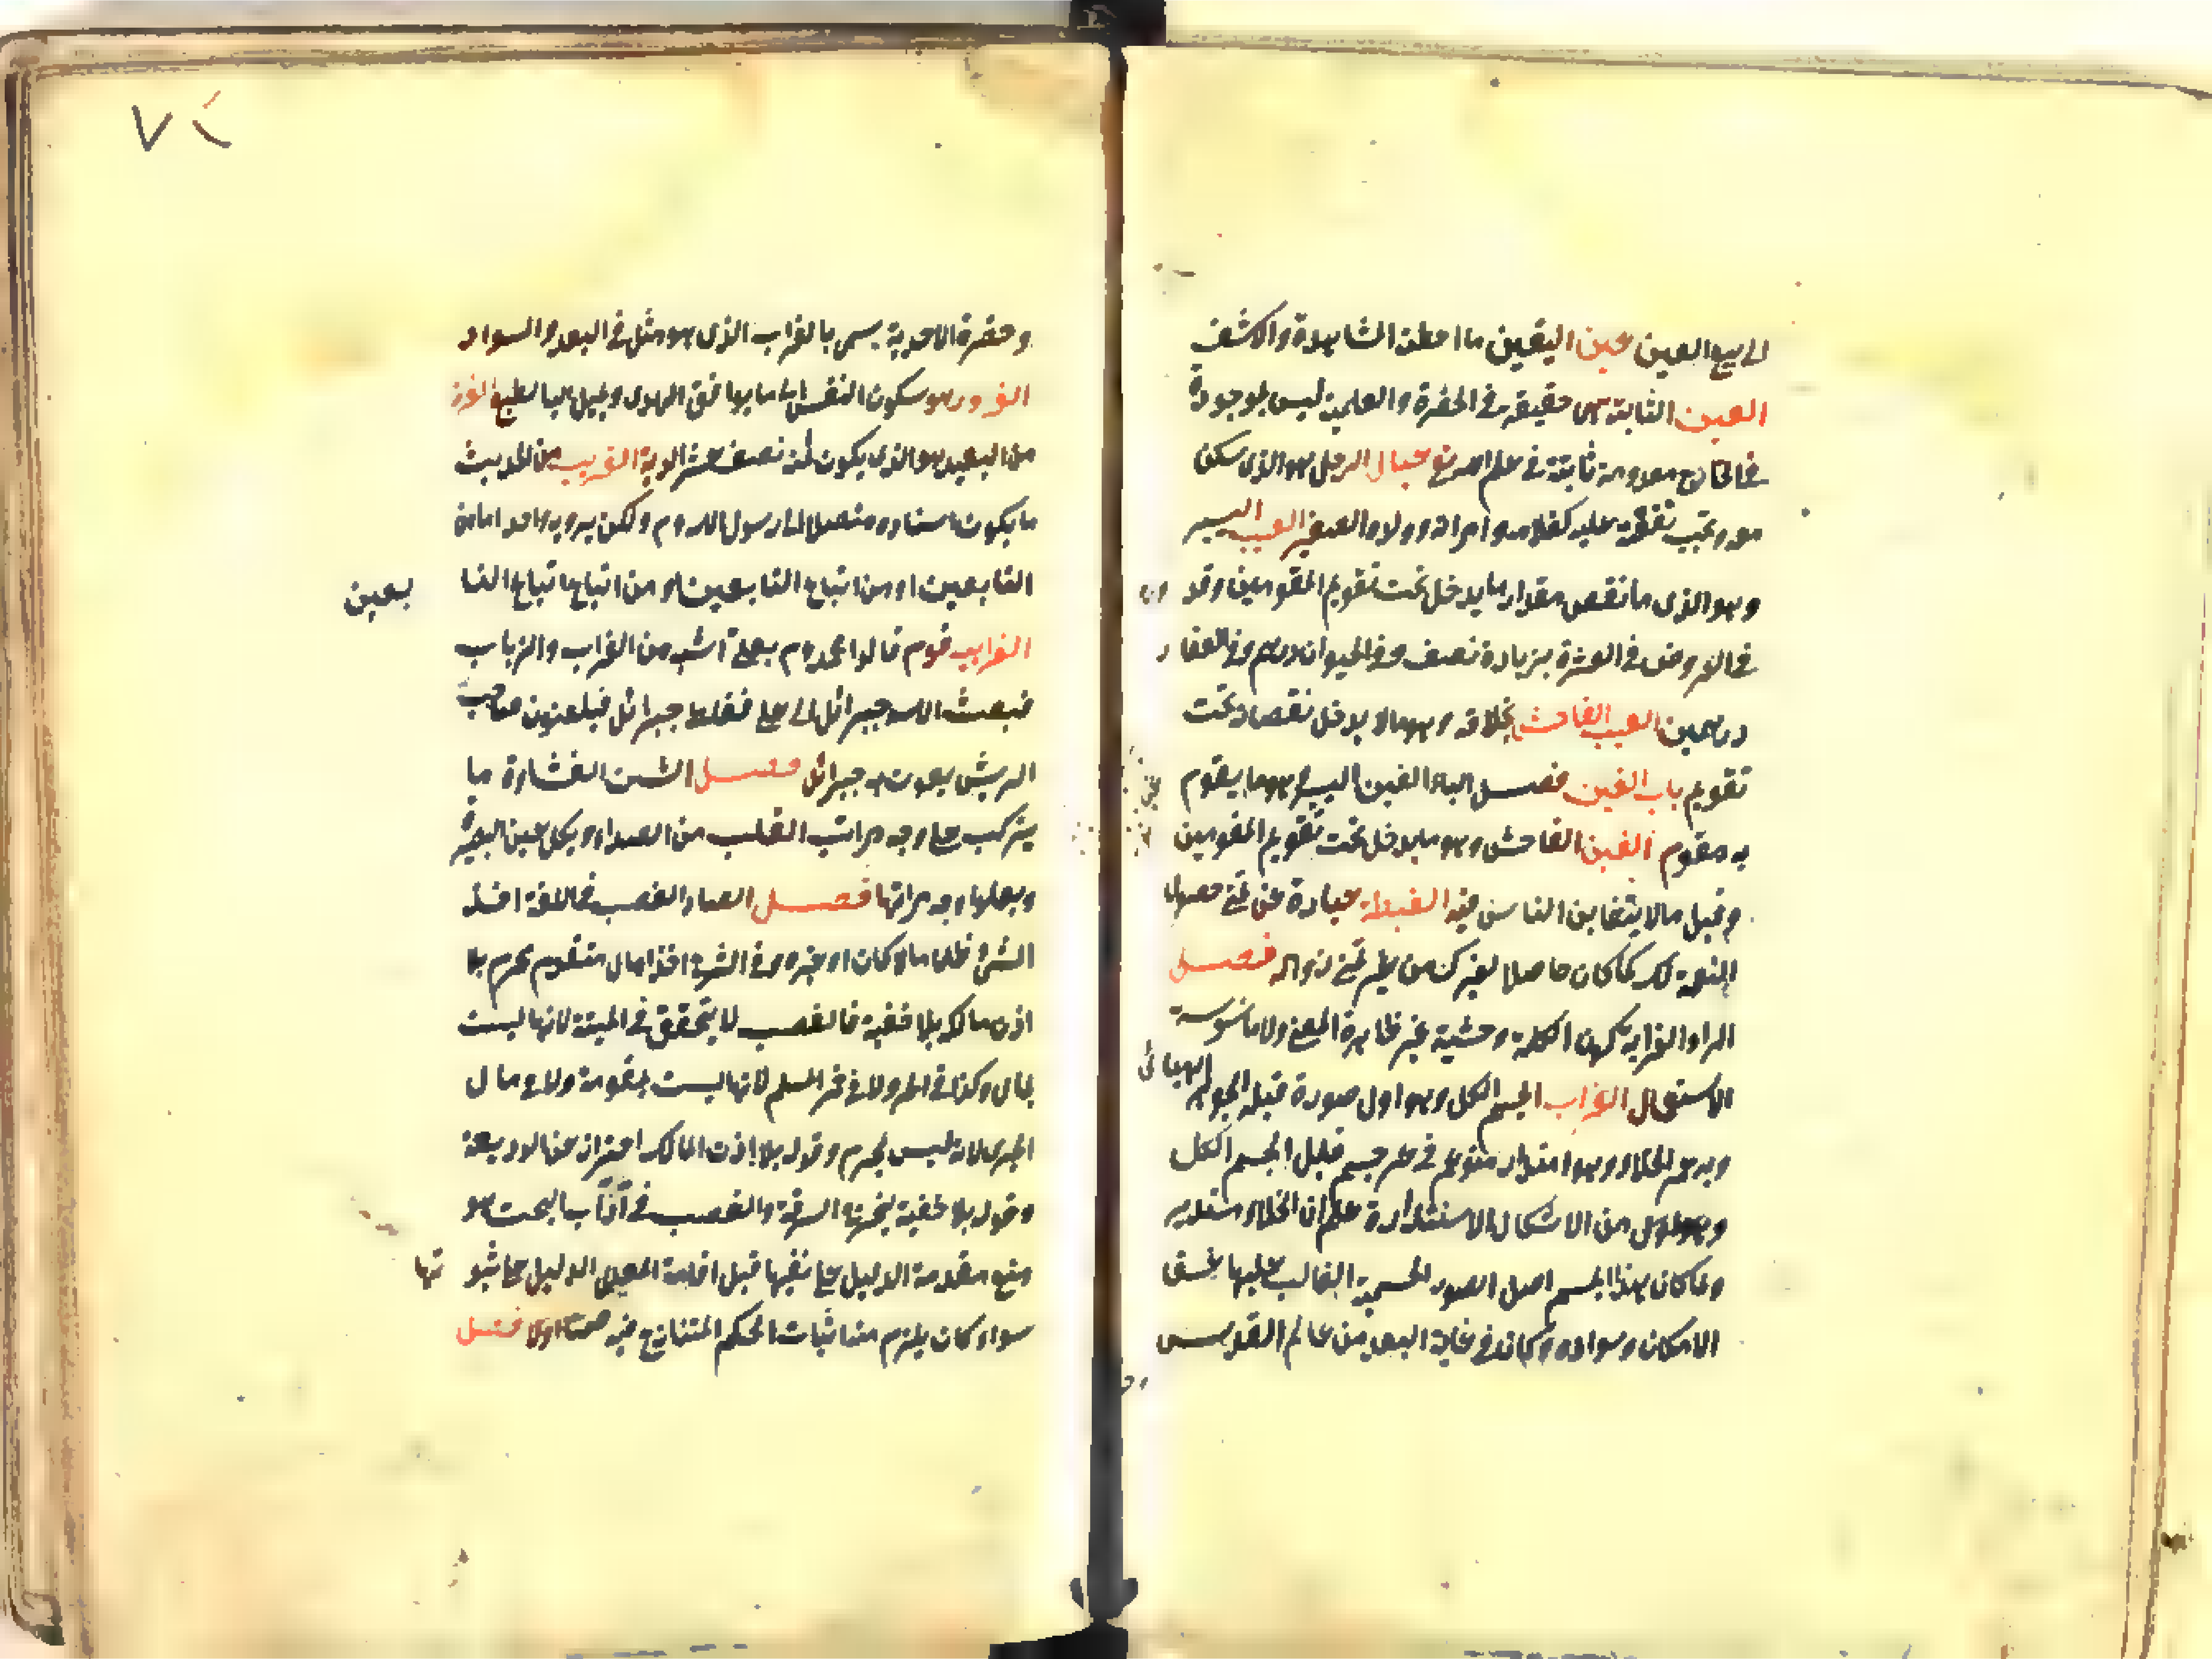 الى بيع العين عين اليقين ما اعطته المشاهدة والكشف
العين الثابتة هى حقيقة فى الحضرة والعلمية ليس بموجودة
فى الخارج معدومة ثابتة فى علم الله تع عيال الرجل هو الذى سكن
معه وتجب نفقته عليه كغلامه وامراته وولده الصغير العيب اليسير
وهو الذى ما نقص مقدار ما يدخل تحت تقويم المقومين وقد
فى العروض فى العشرة بزيادة نصف وفى الحيوان درهم وفى العقار
درهمين العيب الفاحش بخلافه وهو ما لا يدخل نقصانه تحت
تقويم باب الغين فصل الباء الغبن اليسير وهو ما يقوم
به مقوم الغبن الفاحش وهو ما يدخل تحت تقويم المقومين
وقيل ما لا يتغابن الناس فيه الغبطة عبارة عن تمنى حصول
النعمة لك كما كان حاصلا لغيرك من غير تمنى زواله فصل
الراء الغرابة كون الكلمة وحشية غير ظاهرة المعنى ولا مأنوسة
الاستعمال الغراب الجسم الكلى وهو اول صورة قبله الجوهر الهبائى
وبه عم الخلاء وهو امتداد متوهم فى غير جسم قبل الجسم الكل
من الاشكال الاستدارة علم ان الخلاء مستدير
ولما كان هذا الجسم اصل الصور الجسمية الغالب عليها غسق
الامكان وسواده وكان فى غاية البعد من عالم القدس
وحضرة الاحدية يسمى بالغراب الذى هو مثل فى البعد والسواد
الغرور هو سكون النفس الى ما يوافق الهوى ويميل اليه الطبع الغرر
من العبيد هو الذى يكون ثمنه نصف عشر الدية الغريب من الحديث
ما يكون اسناده متصلا الى رسول الله م ولكن يرويه واحد اما من
التابعين او من اتباع التابعين او من اتباع اتباع التا بعين
الغرابية قوم قالوا محمد م بعلى اشبه من الغراب بالغراب والذباب
فبعث الله جبرائل الى على فغلط جبرائل فيلعنون صاحب
الريش يعنون به جبرائل فصل الشين الغشاوة ما
يتركب على وجه مرآة القلب من الصداء ويكل عين البصيرة
ويعلو وجه مراتها فصل الصاد الغصب فى اللغة اخذ
الشئ ظلما مالا كان او غيره وفى الشرع اخذ مال متقوم محرم بلا
اذن مالكه بلا خفية فالغصب لا يتحقق فى الميتة لانها ليست
بمال وكذا فى الحر ولا فى خمر المسلم لانها ليست بمتقومة ولا فى مال
الحربى لانه ليس بمحرم وقوله بلا اذن المالك احتراز عن الوديعة
وقوله بلا خفية ليخرج السرقة والغصب فى آداب البحث هو
منع مقدمة الدليل على نفيها قبل اقامة المعلل الدليل على ثبو تها
سواء كان يلزم منه اثبات الحكم المتنازع فيه ضمنا اولا فصل